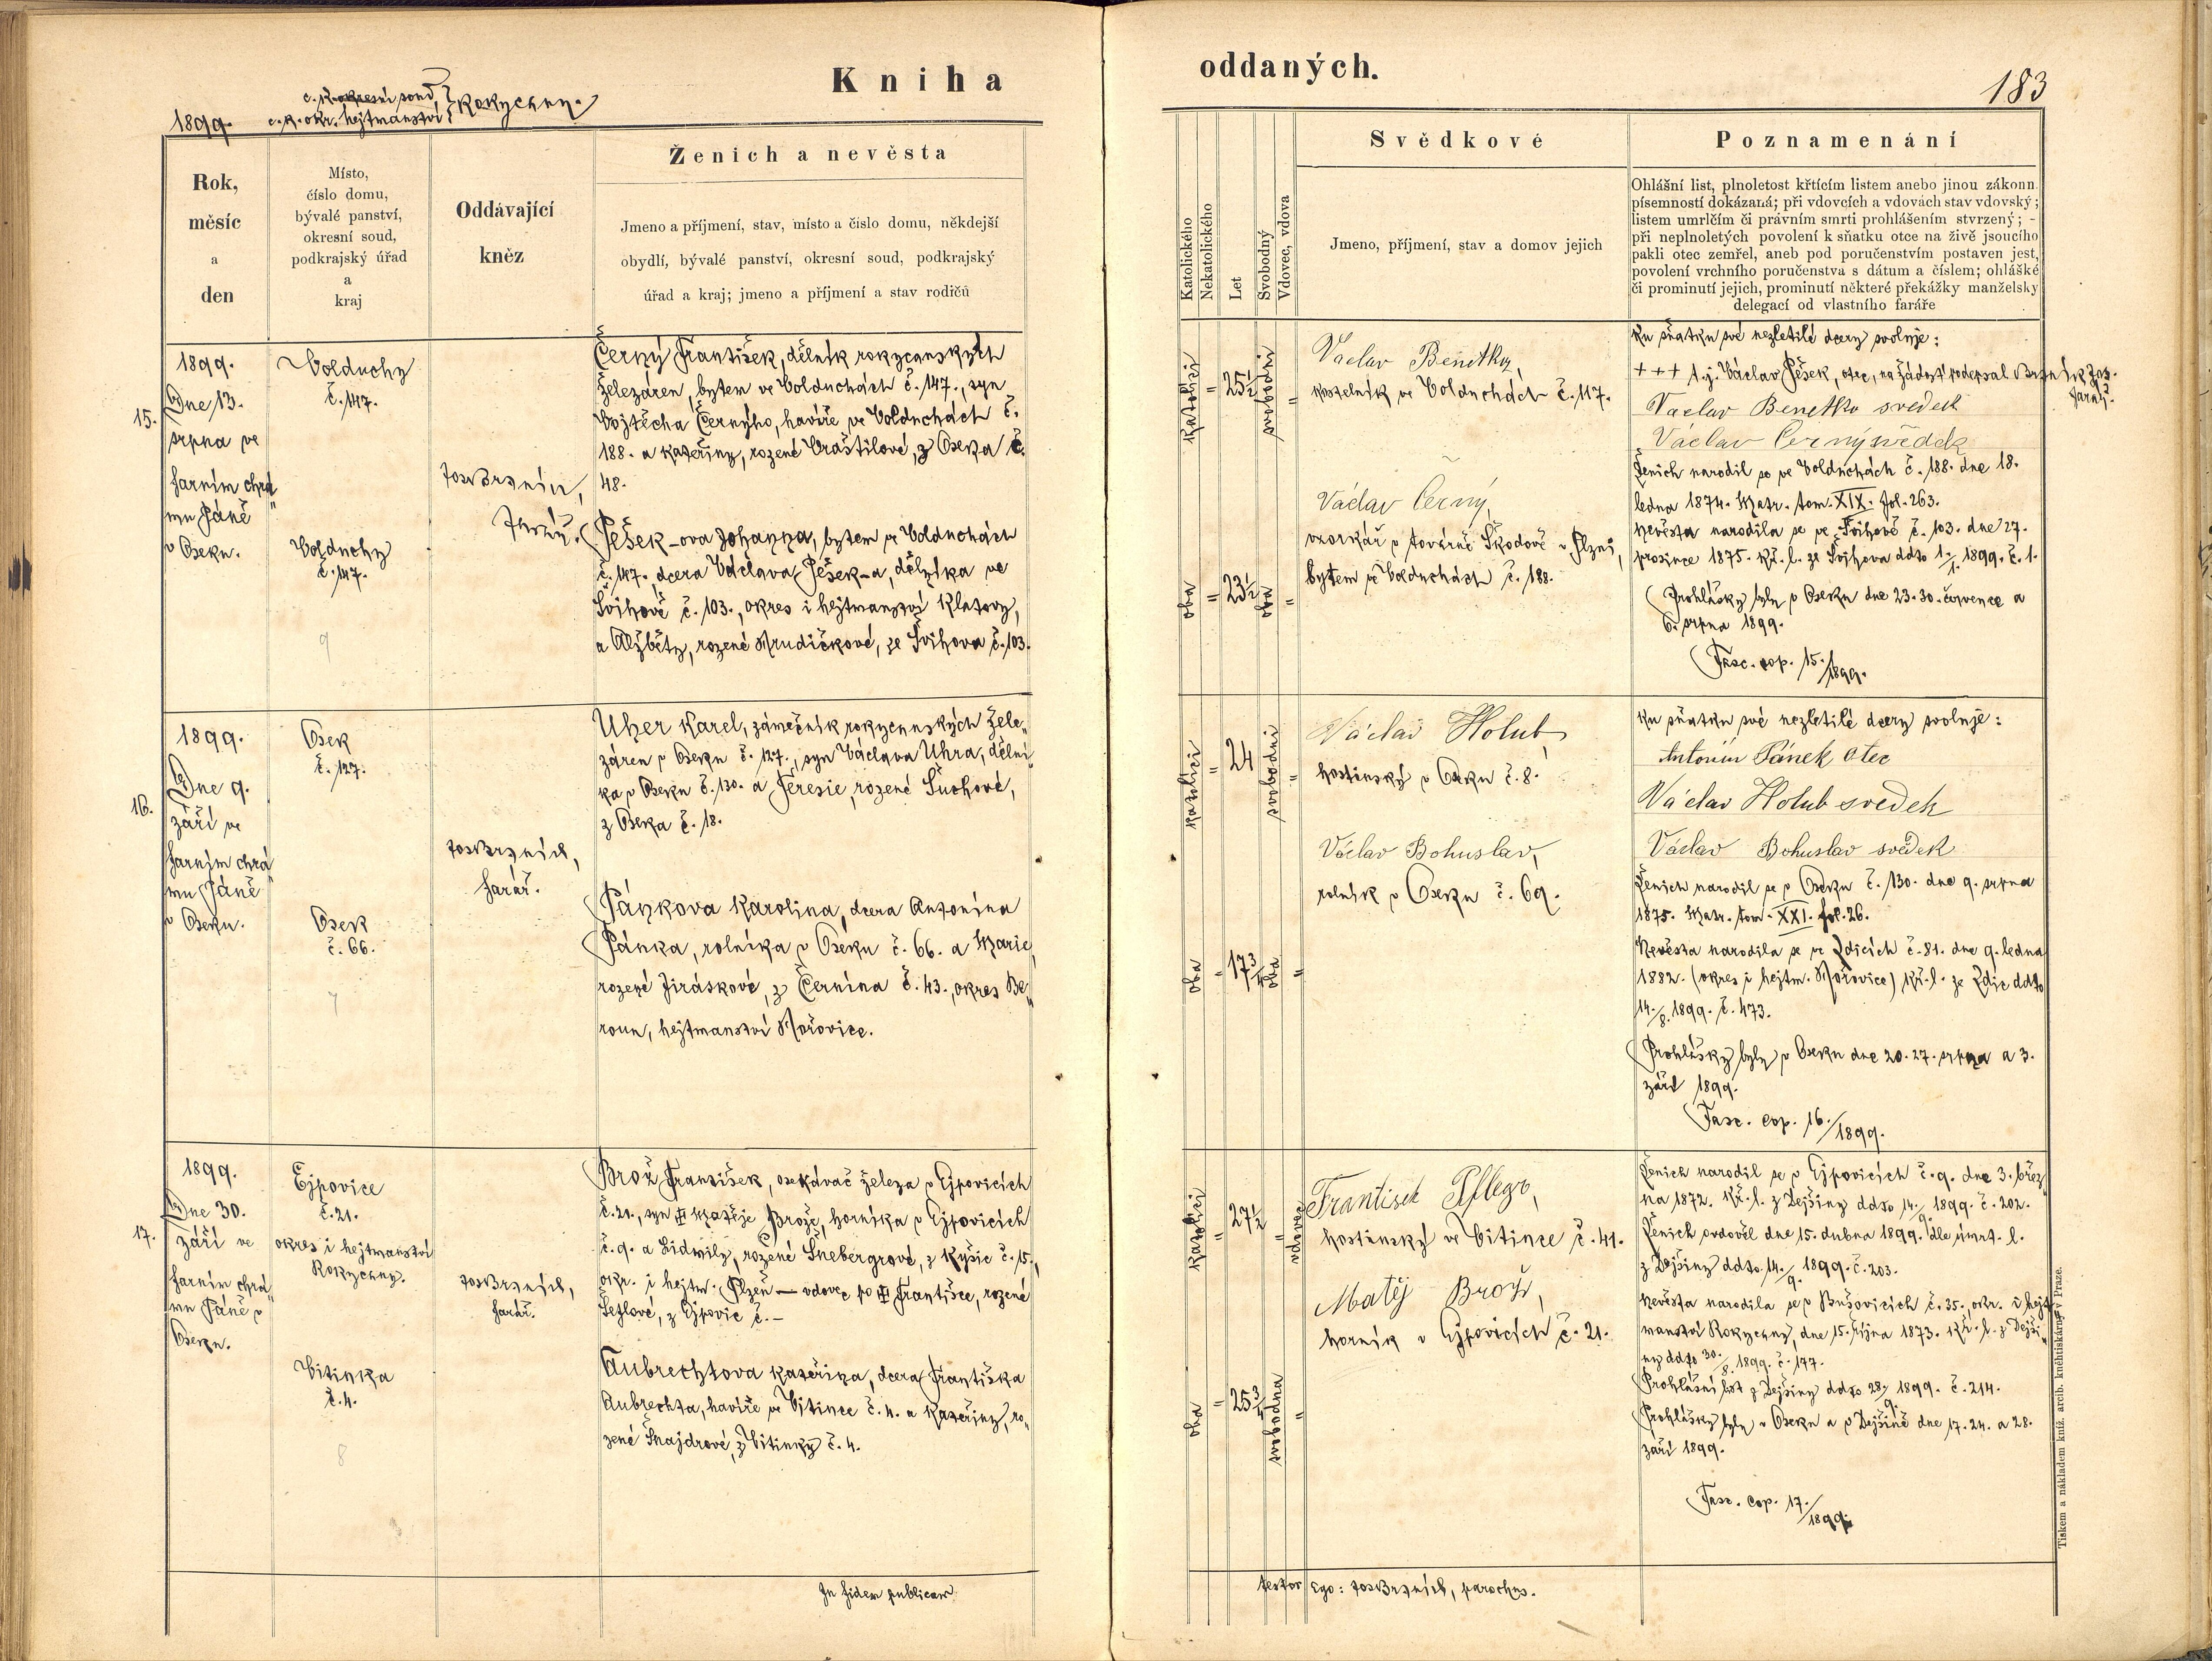 Kniha
oddaných.
183
1899.
c. k. okresní soud,
c. k. okr. hejtmanství
Rokycany.
Rok,
měsíc
a
den
Místo,
číslo domu,
bývalé panství,
okresní soud,
podkrajský úřad
a
kraj
Oddávající
kněz
Ženich a nevěsta
Jmeno a příjmení, stav, místo a číslo domu, někdejší
obydlí, bývalé panství, okresní soud, podkrajský
úřad a kraj; jmeno a příjmení a stav rodičů
Katolického
Nekatolického
Let
Svobodný
Vdovec, vdova
Svědkové
Jmeno, příjmení, stav a domov jejich
Poznamenání
Ohlášní list, plnoletost křtícím listem anebo jinou zákonn.
písemností dokázaná; při vdovcích a vdovách stav vdovský;
listem umrlčím či právním smrti prohlášením stvrzený; -
při neplnoletých povolení k sňatku otce na živě jsoucího
pakli otec zemřel, aneb pod poručenstvím postaven jest,
povolení vrchního poručenstva s dátum a číslem; ohlášké
či prominutí jejich, prominutí některé překážky manželsky
delegací od vlastního faráře
15.
1899.
Dne 13.
srpna ve
farním chrá
mu Páně
v Oseku.
Volduchy
č. 147.
Volduchy
č. 147.
9
Jos. Brzních,
farář.
Černý František, dělník rokycanských
železáren, bytem ve Volduchách č. 147., syn
Vojtěcha Černýho, havíře ve Volduchách č.
188. a Kateřiny, rozené Vraštilové, z Oseka č.
48.
Pešek-ova Johanna, bytem ve Volduchách
č. 147. dcera Václava Pešek-a, dělníka ve
Švihově č. 103., okres i hejtmanství Klatovy,
a Alžběty, rozené Hrudičkové, ze Švihova č. 103.
oba katolíci
25½
23½
oba svobodni
Václav Benetka,
kostelník ve Volduchách č. 117.
Václav Černý,
vzorkář v továrně Škodově v Plzni,
bytem ve Volduchách č. 188.
Ku sňatku své nezletilé dcery svoluje:
+++ t. j. Václav Pešek, otec, na žádost podepsal Brzních Jos.
farář.
Vaclav Benetka svedek
Václav Černý svědek
Ženich narodil se ve Volduchách č. 188. dne 18.
ledna 1874. Matr. tom. XIX. fol. 263.
Nevěsta narodila se ve Švihově č. 103. dne 27.
prosince 1875. Kř. l. ze Švihova ddto 1/1. 1899. č. 1.
Prohlášky byly v Oseku dne 23. 30. července a
6. srpna 1899.
Fasc. cop. 15./1899.
16.
1899.
Dne 9.
září ve
farním chrá
mu Páně
v Oseku.
Osek
č. 127.
Osek
č. 66.
7
Jos. Brzních,
farář.
Uher Karel, zámečník rokycanských žele„
záren v Oseku č. 127., syn Václava Uhra, dělní„
ka v Oseku č. 130. a Teresie, rozené Suchové,
z Oseka č. 18.
Pánkova Karolina, dcera Antonína
Pánka, rolníka v Oseku č. 66. a Marie,
rozené Jiráskové, z Černína č. 43., okres Be„
roun, hejtmanství Hořovice.
oba katolíci
24
17¾
oba svobodni
Václav Holub,
hostinský v Oseku č. 8.
Václav Bohuslav,
rolník v Oseku č. 69.
Ku sňatku své nezletilé dcery svoluje:
Antonín Pánek otec
Václav Holub svedek
Václav Bohuslav svědek
Ženich narodil se v Oseku č. 130. dne 9. srpna
1875. Matr. tom. XXI. fol. 26.
Nevěsta narodila se ve Zdicích č. 81. dne 9. ledna
1882. (okres i hejtm. Hořovice) Kř. l. ze Zdic ddto
14./8. 1899. č. 473.
Prohlášky byly v Oseku dne 20. 27. srpna a 3.
září 1899.
Fasc. cop. 16./1899.
17.
1899.
Dne 30.
září ve
farním chrá„
mu Páně v
Oseku.
Ejpovice
č. 21.
okres i hejtmanství
Rokycany.
Vitinka
č. 4.
8
Jos. Brzních,
farář.
Brož František, osekávač železa v Ejpovicích
č. 21., syn Matěje Brože, horníka v Ejpovicích
č. 9. a Lidmily, rozené Šnebergrové, z Kyšic č. 15.,
okr. i hejtm. Plzeň — vdovec po Františce, rozené
Šetlové, z Ejpovic č. —
Aubrechtova Kateřina, dcera Františka
Aubrechta, havíře ve Vitince č. 4. a Kateřiny, ro„
zené Šnajdrové, z Vitinky č. 4.
oba katolíci
27½
25¾
vdovec
svobodna
Frantisek Pflegr,
hostinský ve Vitince č. 41.
Matěj Brož,
horník v Ejpovicích č. 21.
Ženich narodil se v Ejpovicích č. 9. dne 3. břez
na 1872. Kř. l. z Dejšiny ddto 14./9. 1899. č. 202.
Ženich ovdověl dne 15. dubna 1899. dle úmrt. l.
z Dejšiny ddto 14./9. 1899. č. 203.
Nevěsta narodila se v Bušovicích č. 35., okr. i hejt
manství Rokycany, dne 15. října 1873. Kř. l. z Dejši„
ny ddto 30./8. 1899. č. 177.
Prohlášní list z Dejšiny ddto 28./9. 1899. č. 214.
Prohlášky byly v Oseku a v Dejšině dne 17. 24. a 28.
září 1899.
Fasc. cop. 17./1899.
In fidem publicam
testor Ego: Jos. Brzních, parochus.
Tiskem a nákladem kníž. arcib. knihtiskárny v Praze.